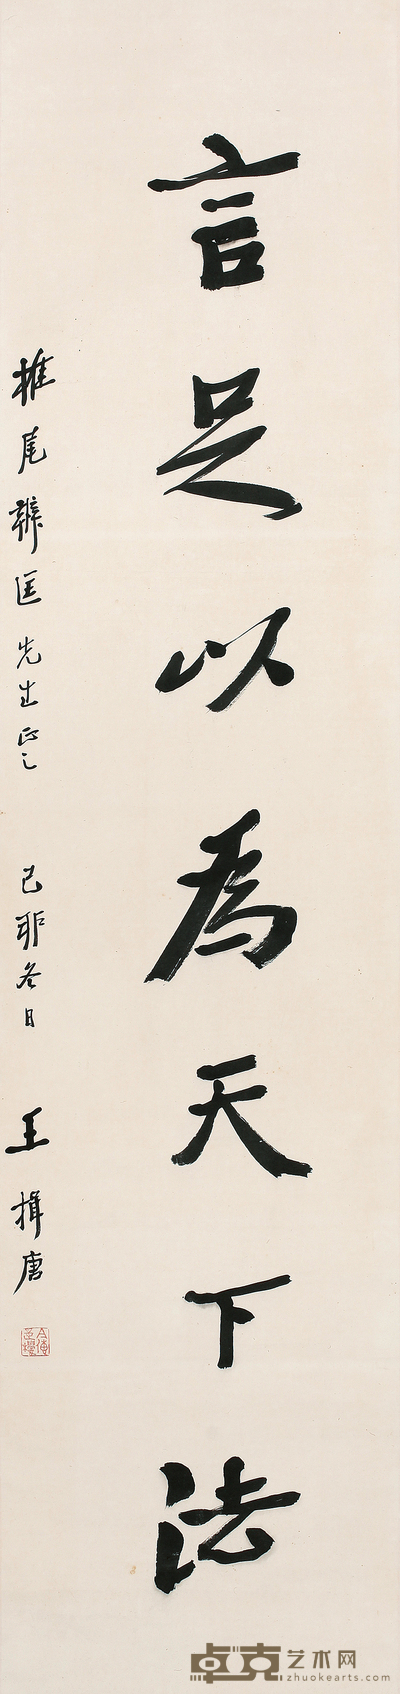 言足以為天下法
椎尾辨匡先生正之 己卯冬日 王揖唐
卓克艺术网
zhuokearts.com